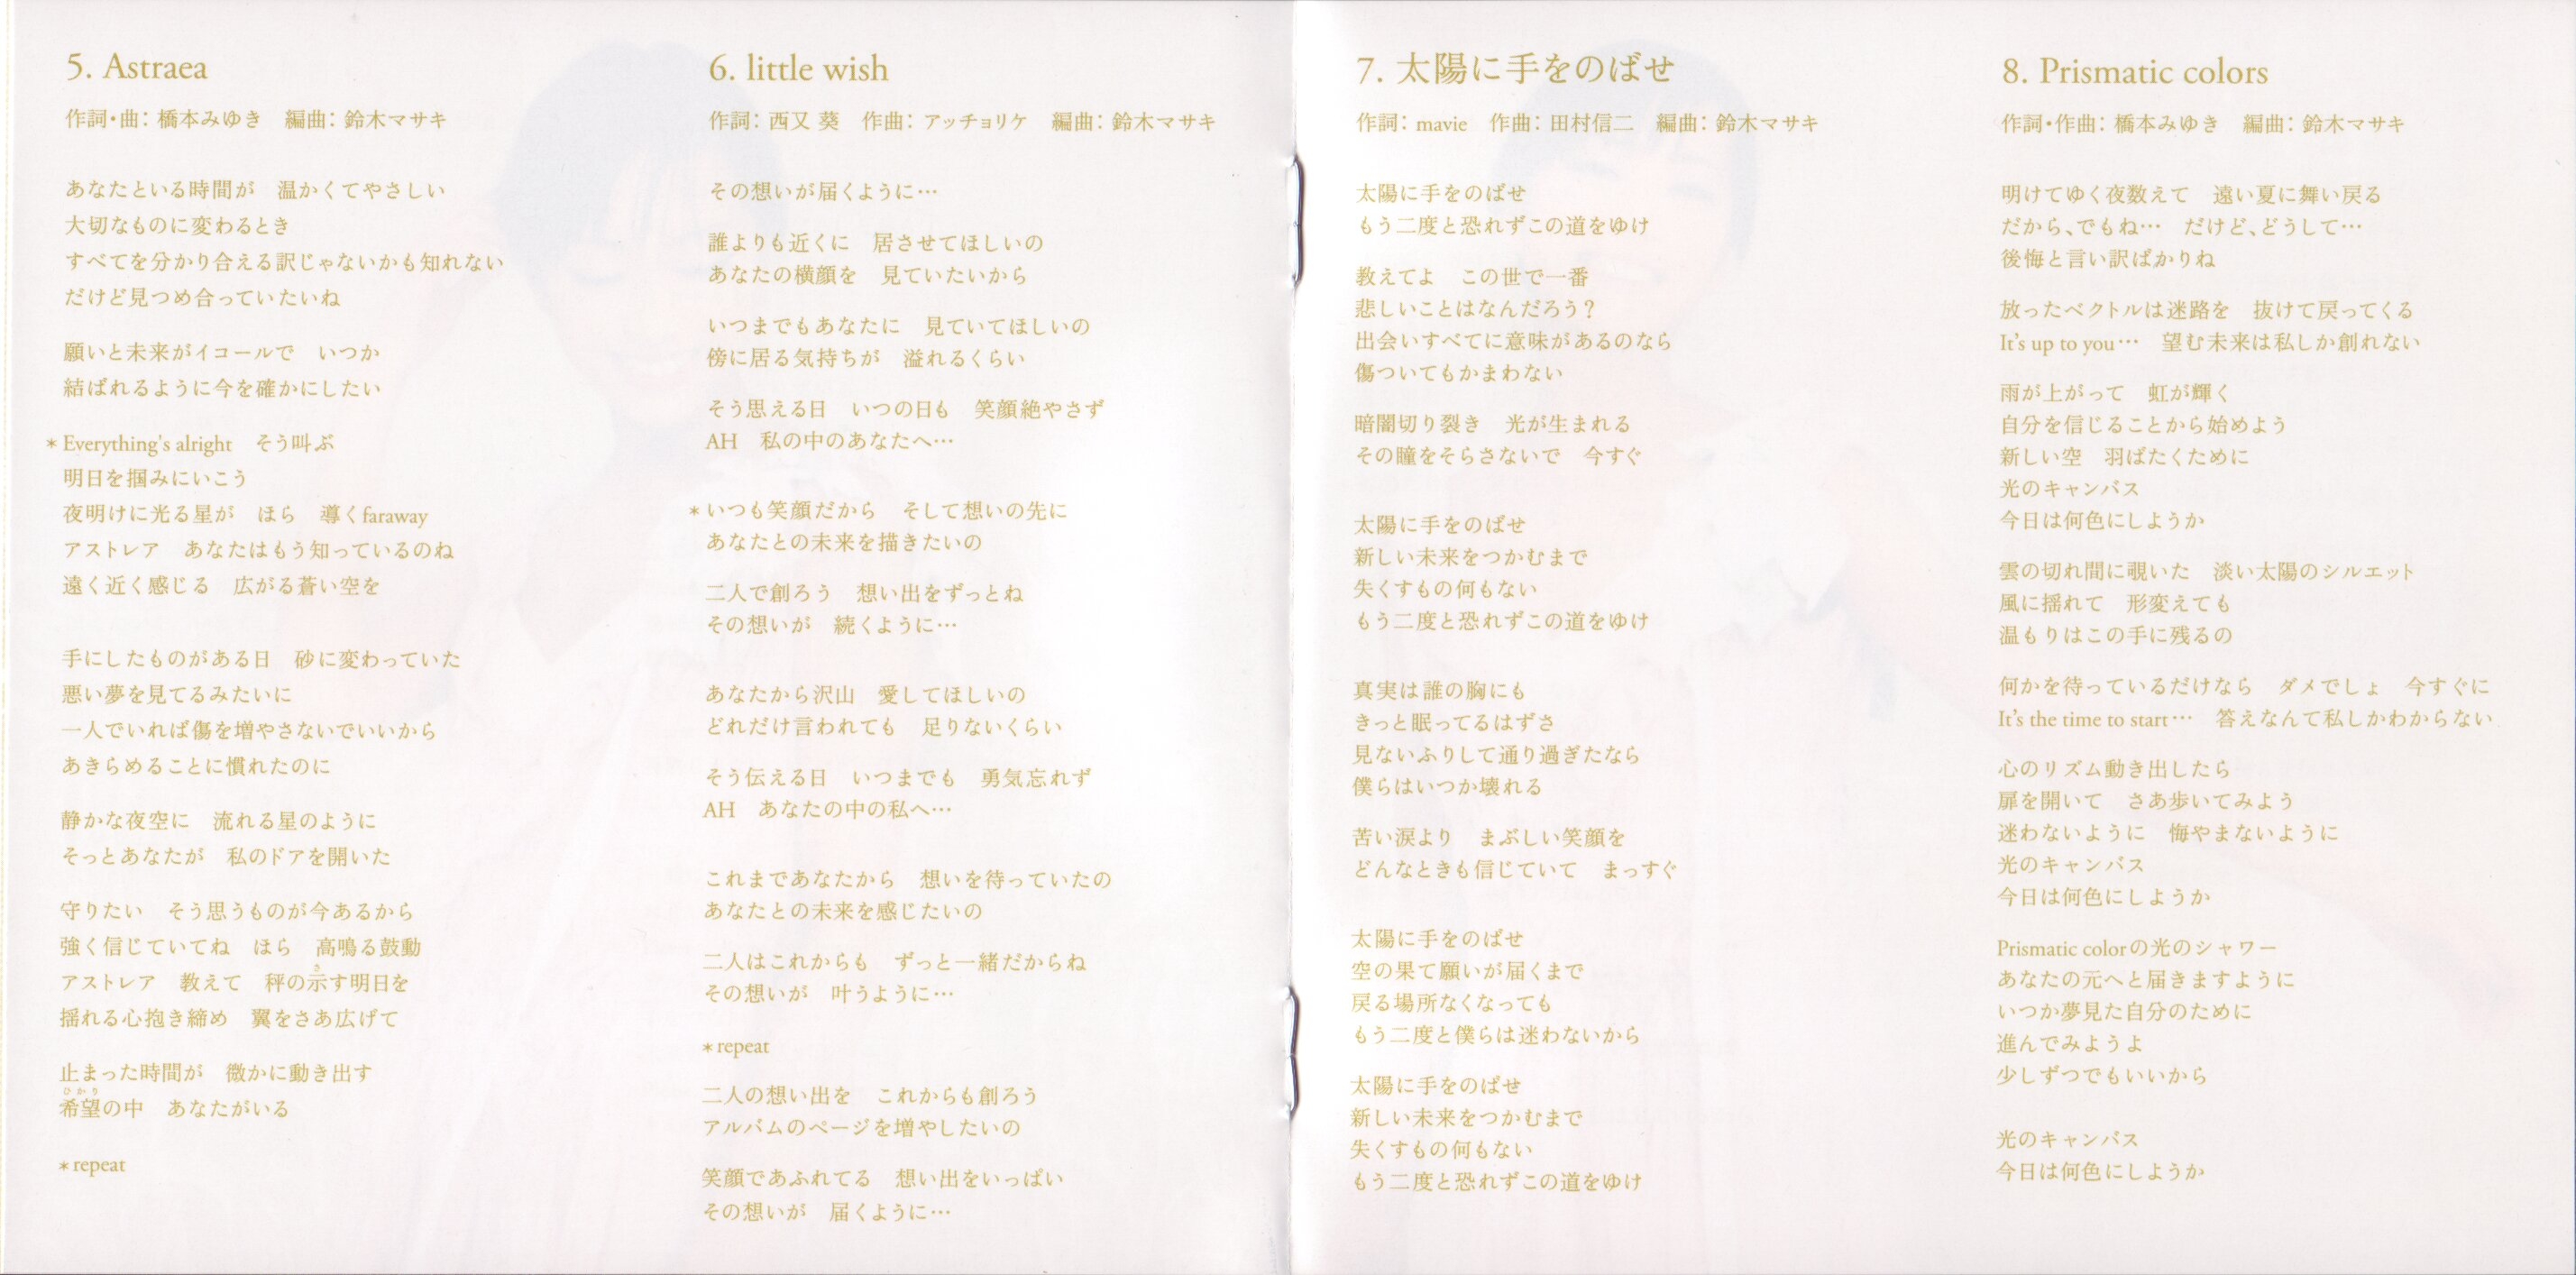 5. Astraea
作詞・曲：橋本みゆき　編曲：鈴木マサキ
あなたといる時間が　温かくてやさしい
大切なものに変わるとき
すべてを分かり合える訳じゃないかも知れない
だけど見つめ合っていたいね
願いと未来がイコールで　いつか
結ばれるように今を確かにしたい
＊Everything's alright　そう叫ぶ
明日を掴みにいこう
夜明けに光る星が　ほら　導くfaraway
アストレア　あなたはもう知っているのね
遠く近く感じる　広がる蒼い空を
手にしたものがある日　砂に変わっていた
悪い夢を見てるみたいに
一人でいれば傷を増やさないでいいから
あきらめることに慣れたのに
静かな夜空に　流れる星のように
そっとあなたが　私のドアを開いた
守りたい　そう思うものが今あるから
強く信じていてね　ほら　高鳴る鼓動
アストレア　教えて　秤の示す明日を
揺れる心抱き締め　翼をさあ広げて
止まった時間が　微かに動き出す
ひかり
希望の中　あなたがいる
＊repeat
6. little wish
作詞：西又 葵　作曲：アッチョリケ　編曲：鈴木マサキ
その想いが届くように…
誰よりも近くに　居させてほしいの
あなたの横顔を　見ていたいから
いつまでもあなたに　見ていてほしいの
傍に居る気持ちが　溢れるくらい
そう思える日　いつの日も　笑顔絶やさず
AH　私の中のあなたへ…
＊いつも笑顔だから　そして想いの先に
あなたとの未来を描きたいの
二人で創ろう　想い出をずっとね
その想いが　続くように…
あなたから沢山　愛してほしいの
どれだけ言われても　足りないくらい
そう伝える日　いつまでも　勇気忘れず
AH　あなたの中の私へ…
これまであなたから　想いを待っていたの
あなたとの未来を感じたいの
二人はこれからも　ずっと一緒だからね
その想いが　叶うように…
＊repeat
二人の想い出を　これからも創ろう
アルバムのページを増やしたいの
笑顔であふれてる　想い出をいっぱい
その想いが　届くように…
7. 太陽に手をのばせ
作詞：mavie　作曲：田村信二　編曲：鈴木マサキ
太陽に手をのばせ
もう二度と恐れずこの道をゆけ
教えてよ　この世で一番
悲しいことはなんだろう？
出会いすべてに意味があるのなら
傷ついてもかまわない
暗闇切り裂き　光が生まれる
その瞳をそらさないで　今すぐ
太陽に手をのばせ
新しい未来をつかむまで
失くすもの何もない
もう二度と恐れずこの道をゆけ
真実は誰の胸にも
きっと眠ってるはずさ
見ないふりして通り過ぎたなら
僕らはいつか壊れる
苦い涙より　まぶしい笑顔を
どんなときも信じていて　まっすぐ
太陽に手をのばせ
空の果て願いが届くまで
戻る場所なくなっても
もう二度と僕らは迷わないから
太陽に手をのばせ
新しい未来をつかむまで
失くすもの何もない
もう二度と恐れずこの道をゆけ
8. Prismatic colors
作詞・作曲：橋本みゆき　編曲：鈴木マサキ
明けてゆく夜数えて　遠い夏に舞い戻る
だから、でもね…　だけど、どうして…
後悔と言い訳ばかりね
放ったベクトルは迷路を　抜けて戻ってくる
It's up to you…　望む未来は私しか創れない
雨が上がって　虹が輝く
自分を信じることから始めよう
新しい空　羽ばたくために
光のキャンバス
今日は何色にしようか
雲の切れ間に覗いた　淡い太陽のシルエット
風に揺れて　形変えても
温もりはこの手に残るの
何かを待っているだけなら　ダメでしょ　今すぐに
It's the time to start…　答えなんて私しかわからない
心のリズム動き出したら
扉を開いて　さあ歩いてみよう
迷わないように　悔やまないように
光のキャンバス
今日は何色にしようか
Prismatic colorの光のシャワー
あなたの元へと届きますように
いつか夢見た自分のために
進んでみようよ
少しずつでもいいから
光のキャンバス
今日は何色にしようか